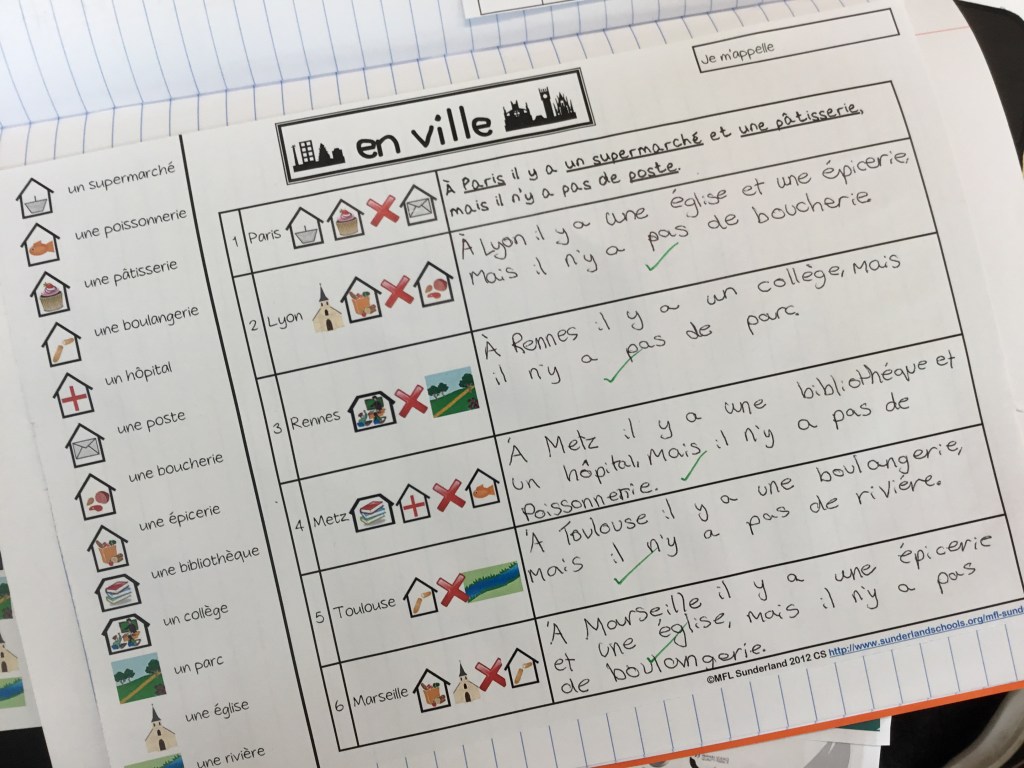 Je m'appelle
en ville
un supermarché
une poissonnerie
une pâtisserie
une boulangerie
un hôpital
une poste
une boucherie
une épicerie
une bibliothèque
un collège
un parc
une église
une rivière
1 Paris
À Paris il y a un supermarché et une pâtisserie,
mais il n'y a pas de poste.
2 Lyon
À Lyon il y a une église et une épicerie,
Mais il n'y a pas de boucherie
3 Rennes
À Rennes il y a un collège, Mais
il n'y a pas de parc.
4 Metz
Á Metz il y a une bibliothéque et
un hôpital, Mais il n'y a pas de
Poissonnerie.
5 Toulouse
'A Toulouse il y a une boulangerie,
Mais il n'y a pas de riviére.
6 Marseille
'A Marseille il y a une épicerie
et une église, mais il n'y a pas
de boulongerie.
©MFL Sunderland 2012 CS http://www.sunderlandschools.org/mfl-sund